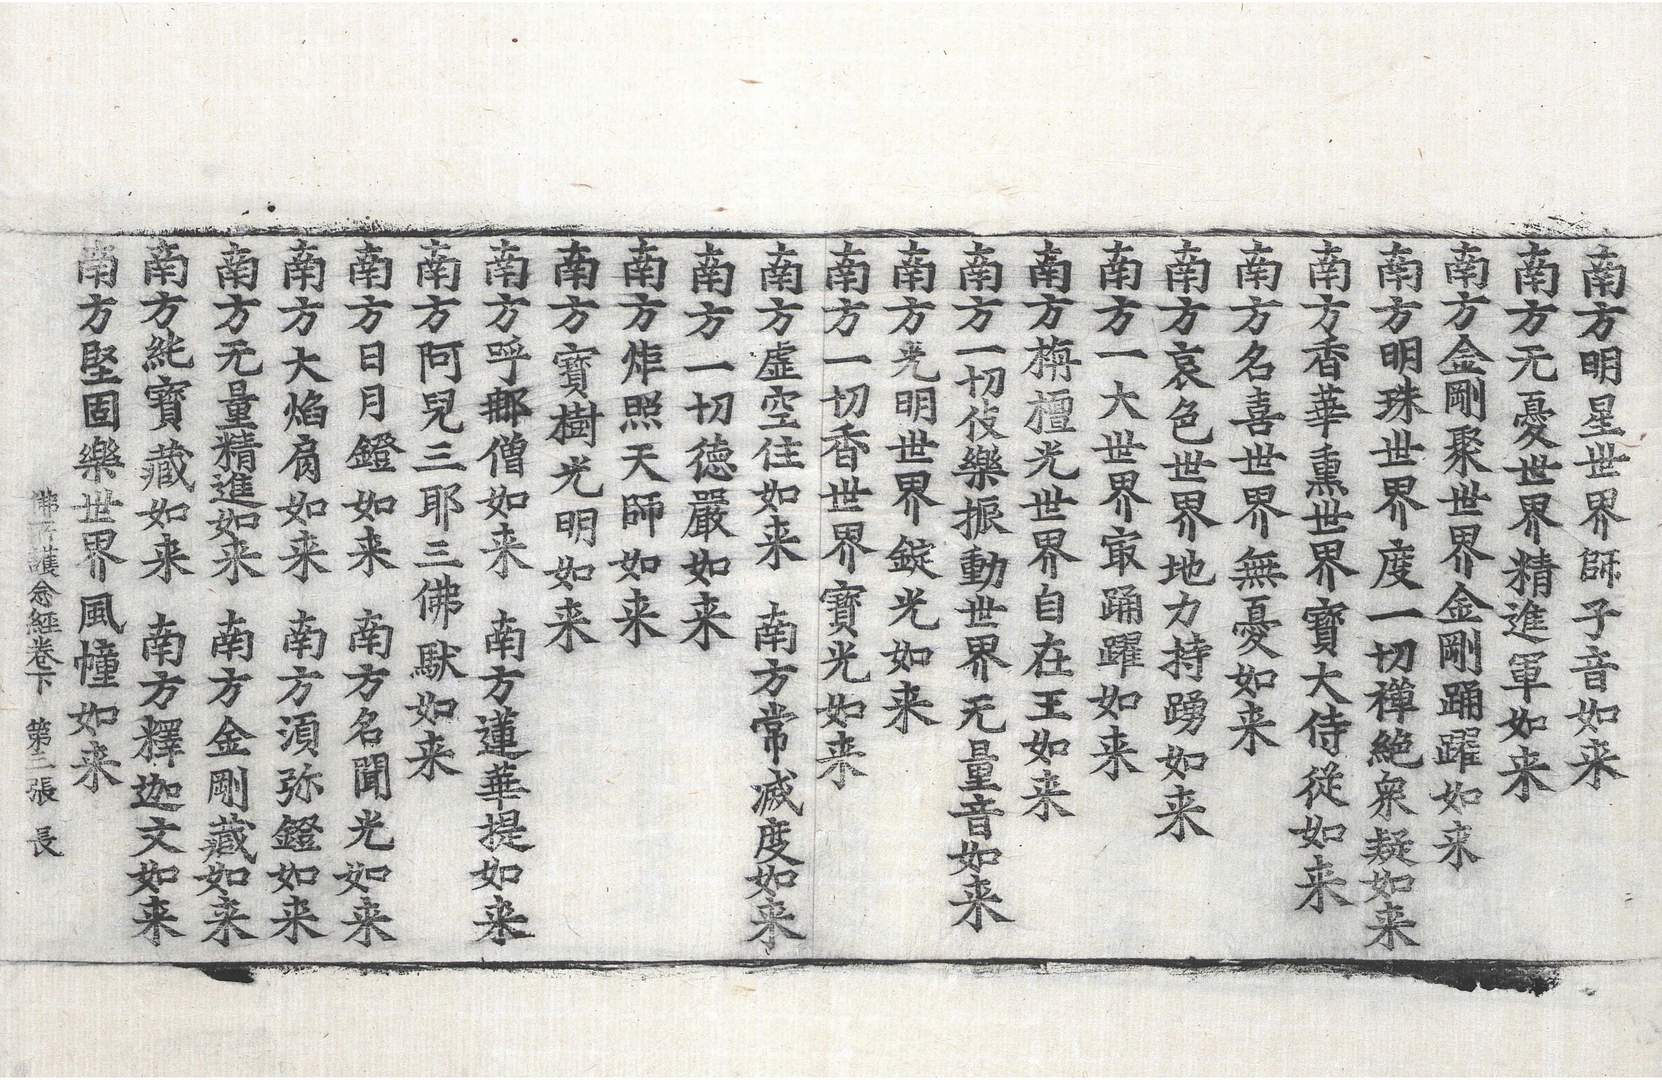 南方明星世界師子音如来
南方无憂世界精進軍如来
南方金剛聚世界金剛踊躍如来
南方明珠世界度一切禪絶衆疑如来
南方香華熏世界寶大侍從如来
南方名喜世界無憂如来
南方哀色世界地力持踴如来
南方一大世界㝡踊躍如来
南方栴檀光世界自在王如来
南方一切伎樂振動世界无量音如来
南方光明世界錠光如来
南方一切香世界寶光如来
南方虛空住如来 南方常滅度如来
南方一切德嚴如来
南方炬照天師如来
南方寶樹光明如来
南方呼㖠僧如来 南方蓮華提如来
南方阿兒三耶三佛馱如来
南方日月鐙如来 南方名聞光如来
南方大焰肩如来 南方湏弥鐙如来
南方无量精進如来 南方金剛藏如来
南方純寶藏如来 南方釋迦文如来
南方堅固樂世界風幢如来
佛所護念經卷下 第三張 長